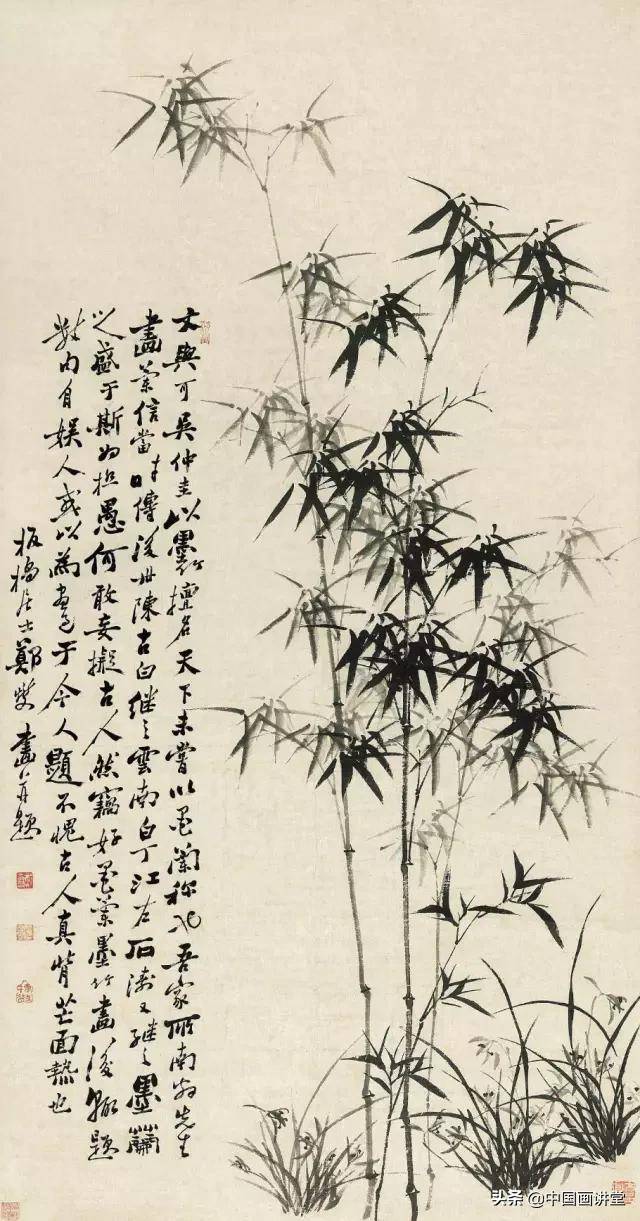 文與可吳仲圭以墨竹擅名天下未嘗以墨蘭稱也吾家所南翁先生
畫蘭信當時傳後世陳古白繼之雲南白丁江左石濤又繼之墨蘭
之盛于斯為極愚何敢妄擬古人然竊好墨蘭墨竹畫後輒題
自娛人或以為畫過于今人題不愧古人真背芒面熱也
板橋居士鄭燮畫并題
头条 @中国画讲堂